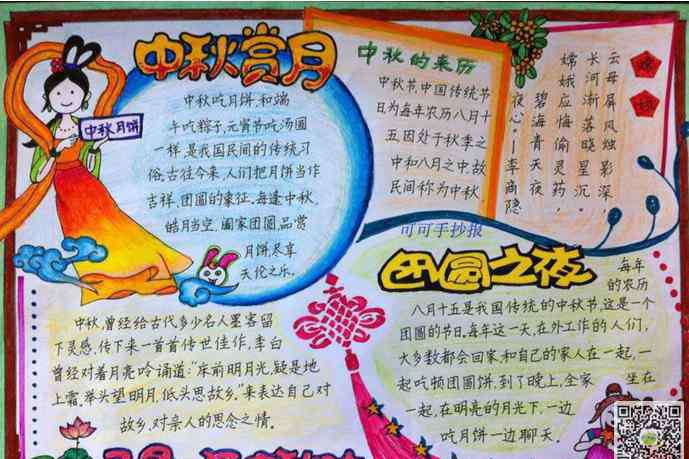 中秋赏月
中秋月饼
中秋吃月饼,和端
午吃粽子,元宵节吃汤圆
一样,是我国民间的传统习
俗,古往今来,人们把月饼当作
吉祥,团圆的象征,每逢中秋,
皓月当空,阖家团圆,品尝
月饼,尽享
天伦之乐。
中秋的来历
中秋节,中国传统节
日为每年农历八月十
五,因处于秋季之
中和八月之中,故
民间称为中秋
嫦娥
云母屏风烛影深,
长河渐落晓星沉。
嫦娥应悔偷灵药,
碧海青天夜
夜心。——李商隐
可可手抄报
团圆之夜
每年
的农历
八月十五是我国传统的中秋节,这是一个
团圆的节日,每年这一天,在外工作的人们,
大多数都会回家,和自己的家人在一起,一
起吃顿团圆饼,到了晚上,全家 坐在
一起,在明亮的月光下,一边
吃月饼一边聊天。
中秋,曾经给古代多少名人墨客留
下灵感,传下来一首首传世佳作,李白
曾经对着月亮吟诵道:"床前明月光,疑是地
上霜。举头望明月,低头思故乡。"来表达自己对
故乡,对亲人的思念之情。